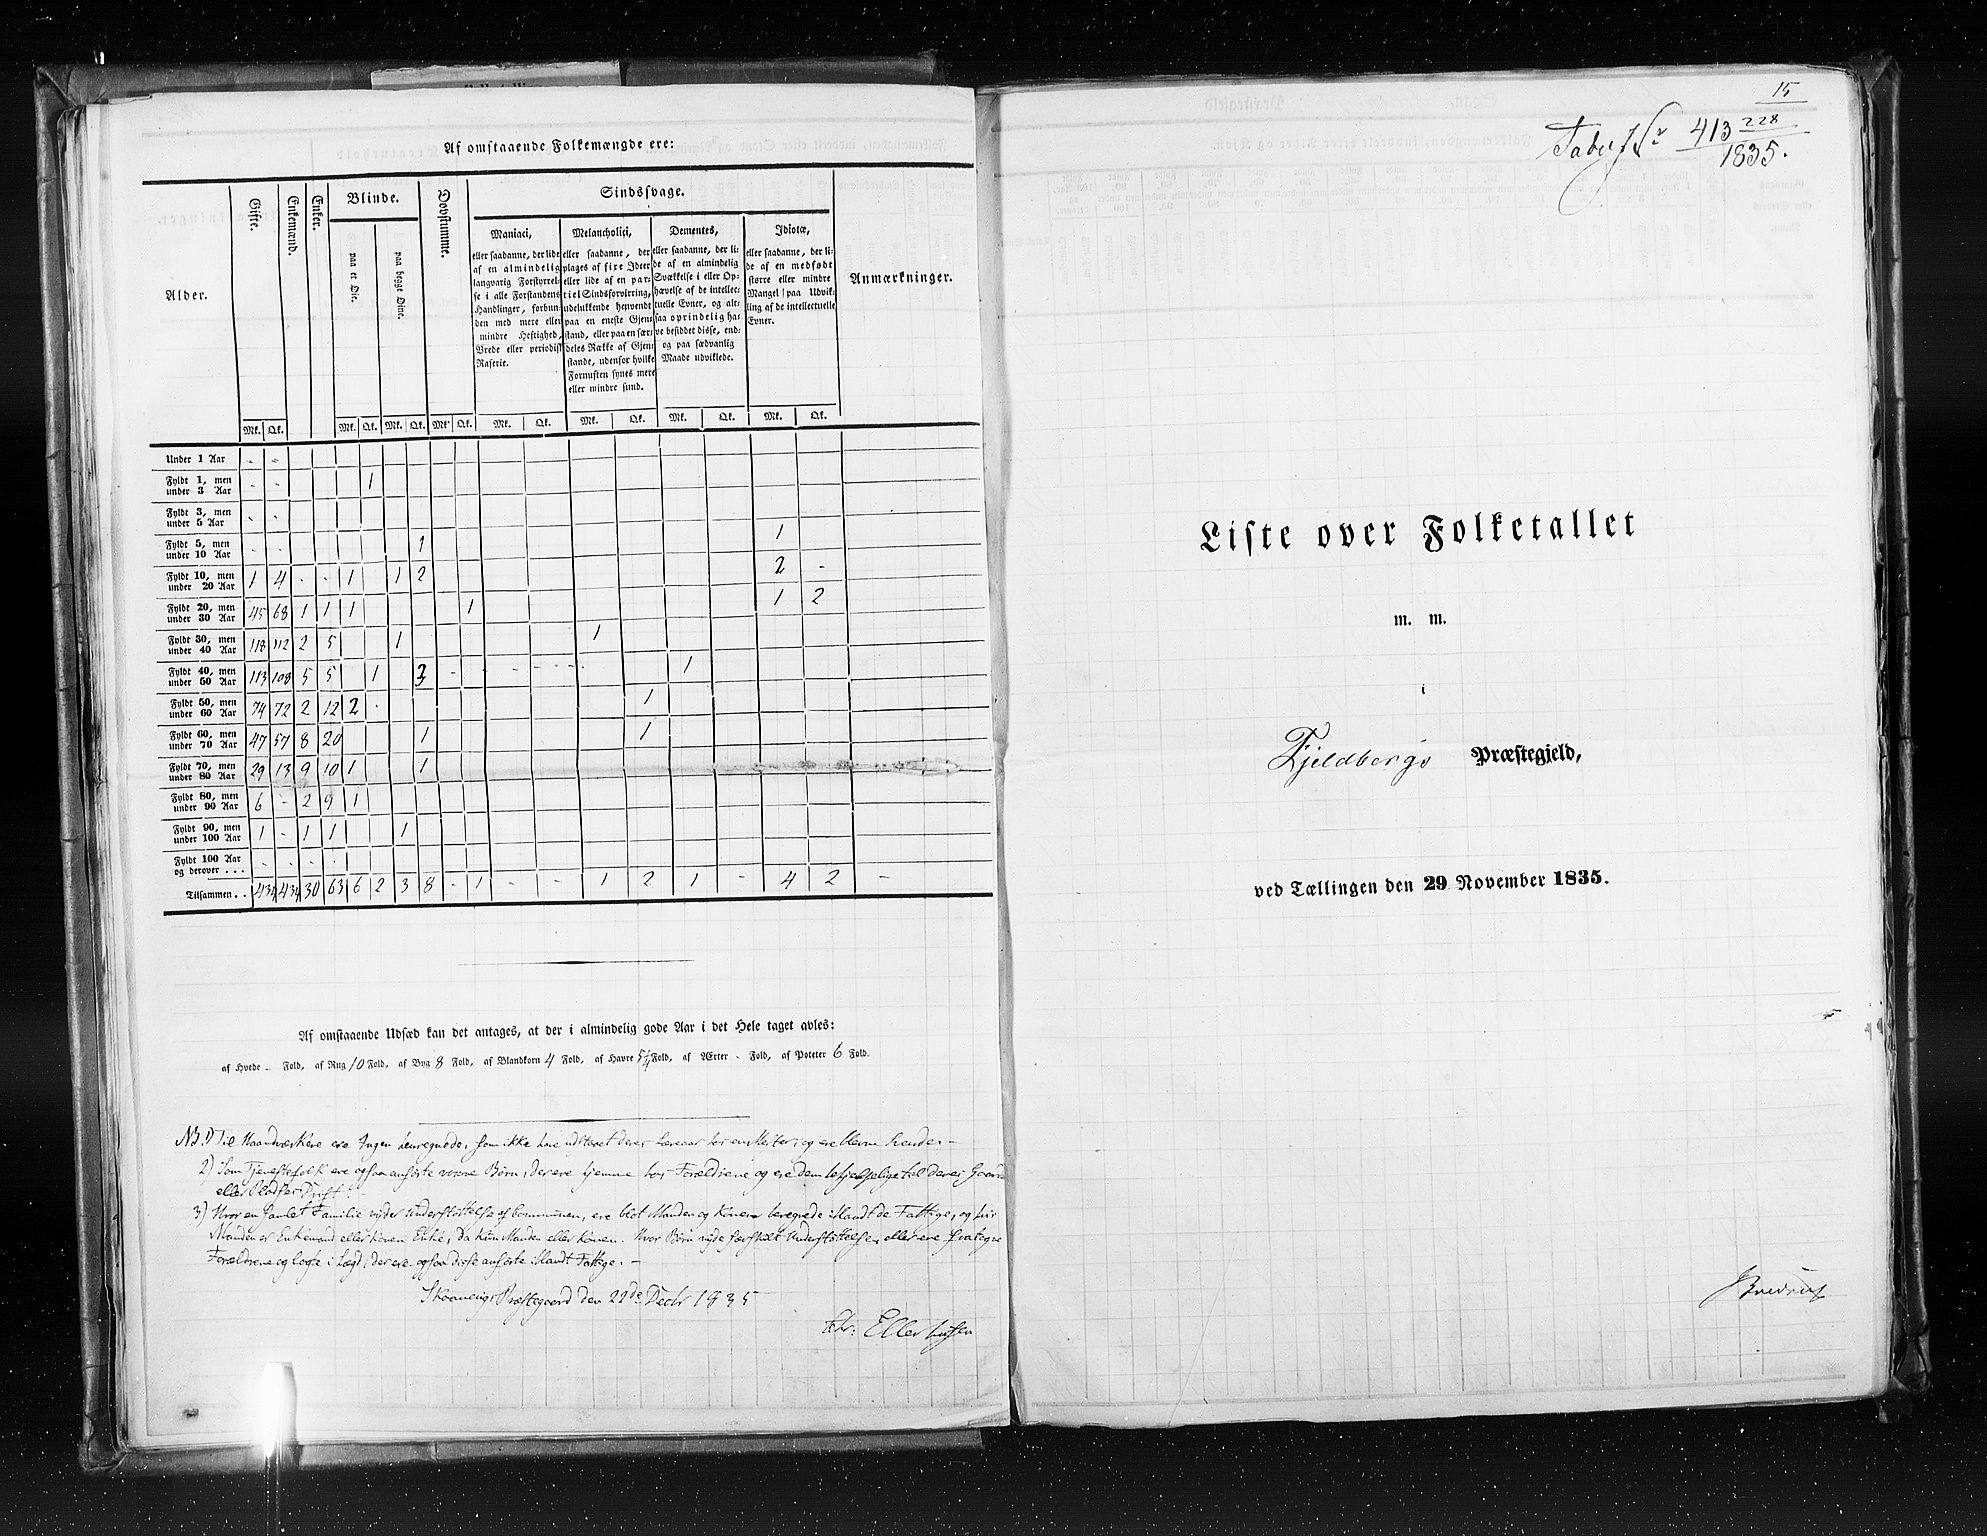 Af omstaaende Folkemængde ere:
Alder.
Gifte.
Enkemænd.
Enker.
Blinde.
paa et Øie.
paa begge Øine.
Døvstumme.
Sindssvage.
Maniaci,
eller saadanne, der lide
af en almindelig
langvarig Forstyrrel-
se i alle Forstandens
Handlinger, forbun-
den med mere eller
mindre Heftighed,
Vrede eller periodisk
Raserie.
Melancholici,
eller saadanne, der
plages af fixe Ideer
eller lide af en par-
tiel Sindsforvirring,
udelukkende henvendt
paa en eneste Gjen-
stand, eller paa en sær-
deles Række af Gjen-
stande, udenfor hvilke
Fornuften synes mere
eller mindre sund.
Dementes,
eller saadanne, der li-
de af en almindelig
Svækkelse i eller Op-
hævelse af de intellec-
tuelle Evner, og alt-
saa oprindelig ha-
ve besiddet disse, end-
og paa sædvanlig
Maade udviklede.
Idiotæ,
eller saadanne, der li-
de af en medfødt
større eller mindre
Mangel paa Udvik-
ling af de intellectuelle
Evner.
Anmærkninger.
Mk. Qk. Mk. Qk. Mk. Qk. Mk. Qk. Mk. Qk. Mk. Qk. Mk. Qk. Mk. Qk.
Under 1 Aar - -
Fyldt 1, men under 3 Aar - - 1
Fyldt 3, men under 5 Aar - -
Fyldt 5, men under 10 Aar - - 1 1
Fyldt 10, men under 20 Aar 1 4 - - 1 1 2 2 -
Fyldt 20, men under 30 Aar 45 68 1 1 1 1 1 2
Fyldt 30, men under 40 Aar 118 112 2 5 1 1
Fyldt 40, men under 50 Aar 113 108 5 5 1 3 - - - - - 1
Fyldt 50, men under 60 Aar 74 72 2 12 2 - 1
Fyldt 60, men under 70 Aar 47 57 8 20 1 1
Fyldt 70, men under 80 Aar 29 13 9 10 1 1
Fyldt 80, men under 90 Aar 6 - 2 9 1
Fyldt 90, men under 100 Aar 1 - 1 1 1
Fyldt 100 Aar og derover . . . - - - -
Tilsammen . . 434 434 30 63 6 2 3 8 - 1 - - 1 2 1 - 4 2 -
Af omstaaende Udsæd kan det antages, at der i almindelig gode Aar i det Hele taget avles:
af Hvede - Fold, af Rug 10 Fold, af Byg 8 Fold, af Blandkorn 4 Fold, af Havre 5¼ Fold, af Ærter - Fold, af Poteter 6 Fold.
NB. 1) Til Haandværkere ere Ingen henregnede, som ikke have udstaaet deres Læreaar hos en Mester, og ere
2) Som Tjenestefolk ere ogsaa anførte voxne Børn, der ere hjemme hos Forældrene og ere dem behjelpelige til deres Gaards
eller Pladses Drift. -
3) Hvor en samlet Familie nyder Understøttelse af Communen, ere blot Manden og Konen beregnede iblandt de Fattige, og hvis
Manden er Enkemand eller Konen Enke, da kun Manden eller Konen. Hvor Børn nyde særskilt Understøttelse, eller ere fratagne
Forældrene og lagte i Lægd, der ere ogsaa disse anførte iblandt Fattige. -
Skaanevigs Præstegaard den 21de Decbr 1835
Chr: Ellerhusen
15
413 228
1835.
Liste over Folketallet
m. m.
i
Fjeldbergs Præstegjeld,
ved Tællingen den 29 November 1835.